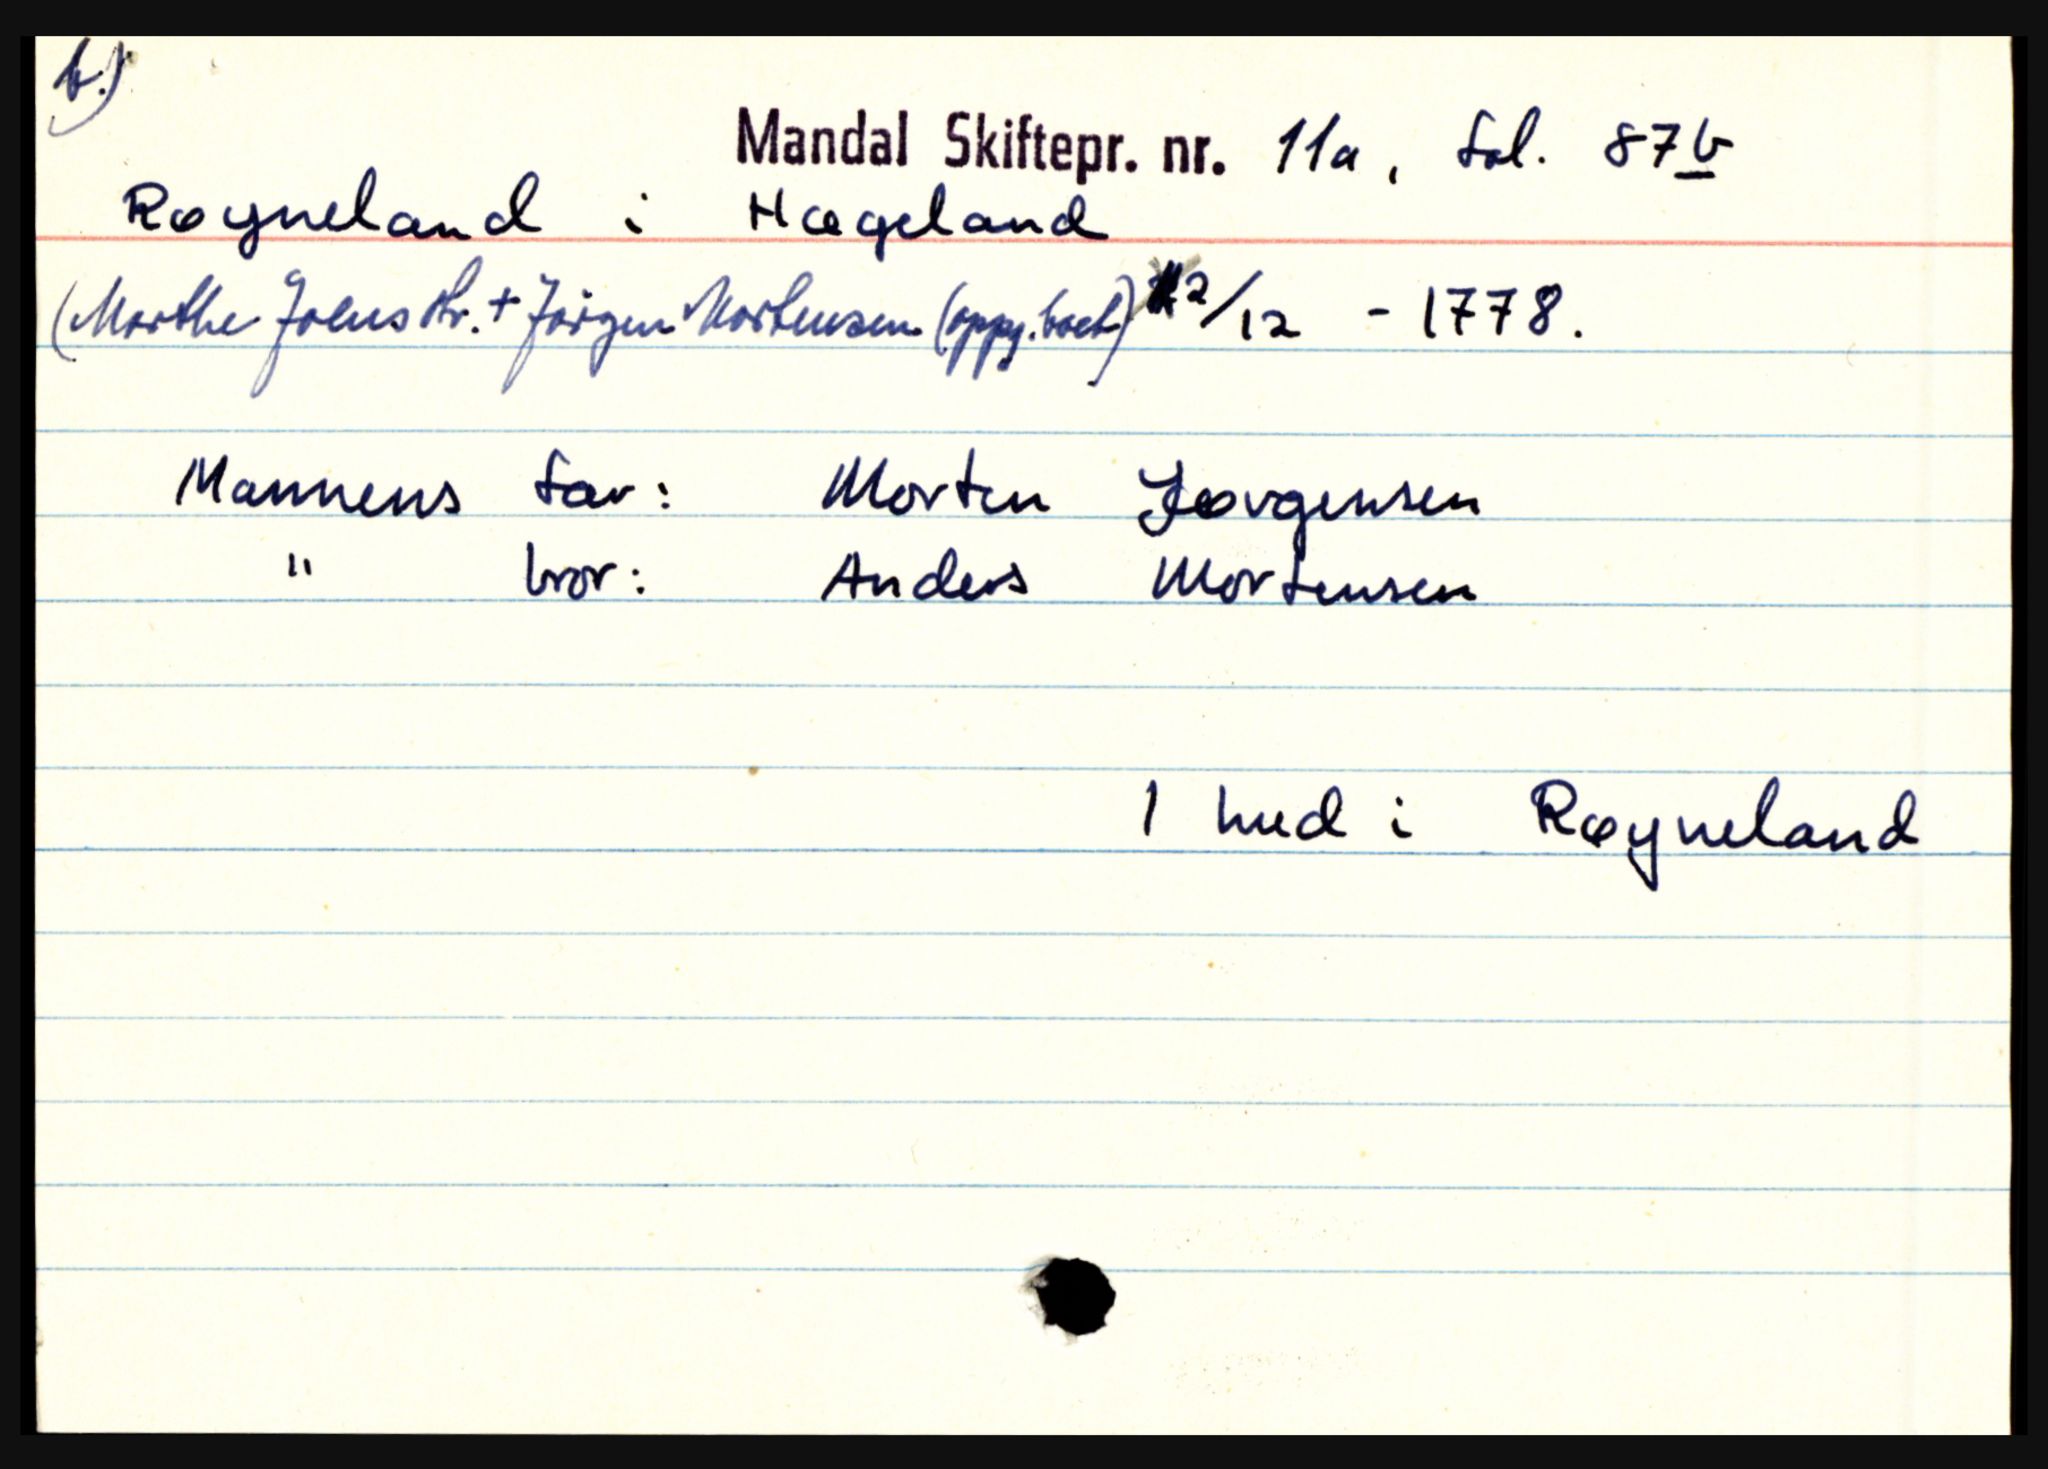 b.)
Mandal Skiftepr. nr. 11a, fol. 87b
Røyneland i Hægeland
(Marthe Joensdtr. + Jörgen Mortensen (oppg. boet) 2/12 - 1778.
Mannens far: Morten Jørgensen
" bror: Anders Mortensen
1 hud i Røyneland